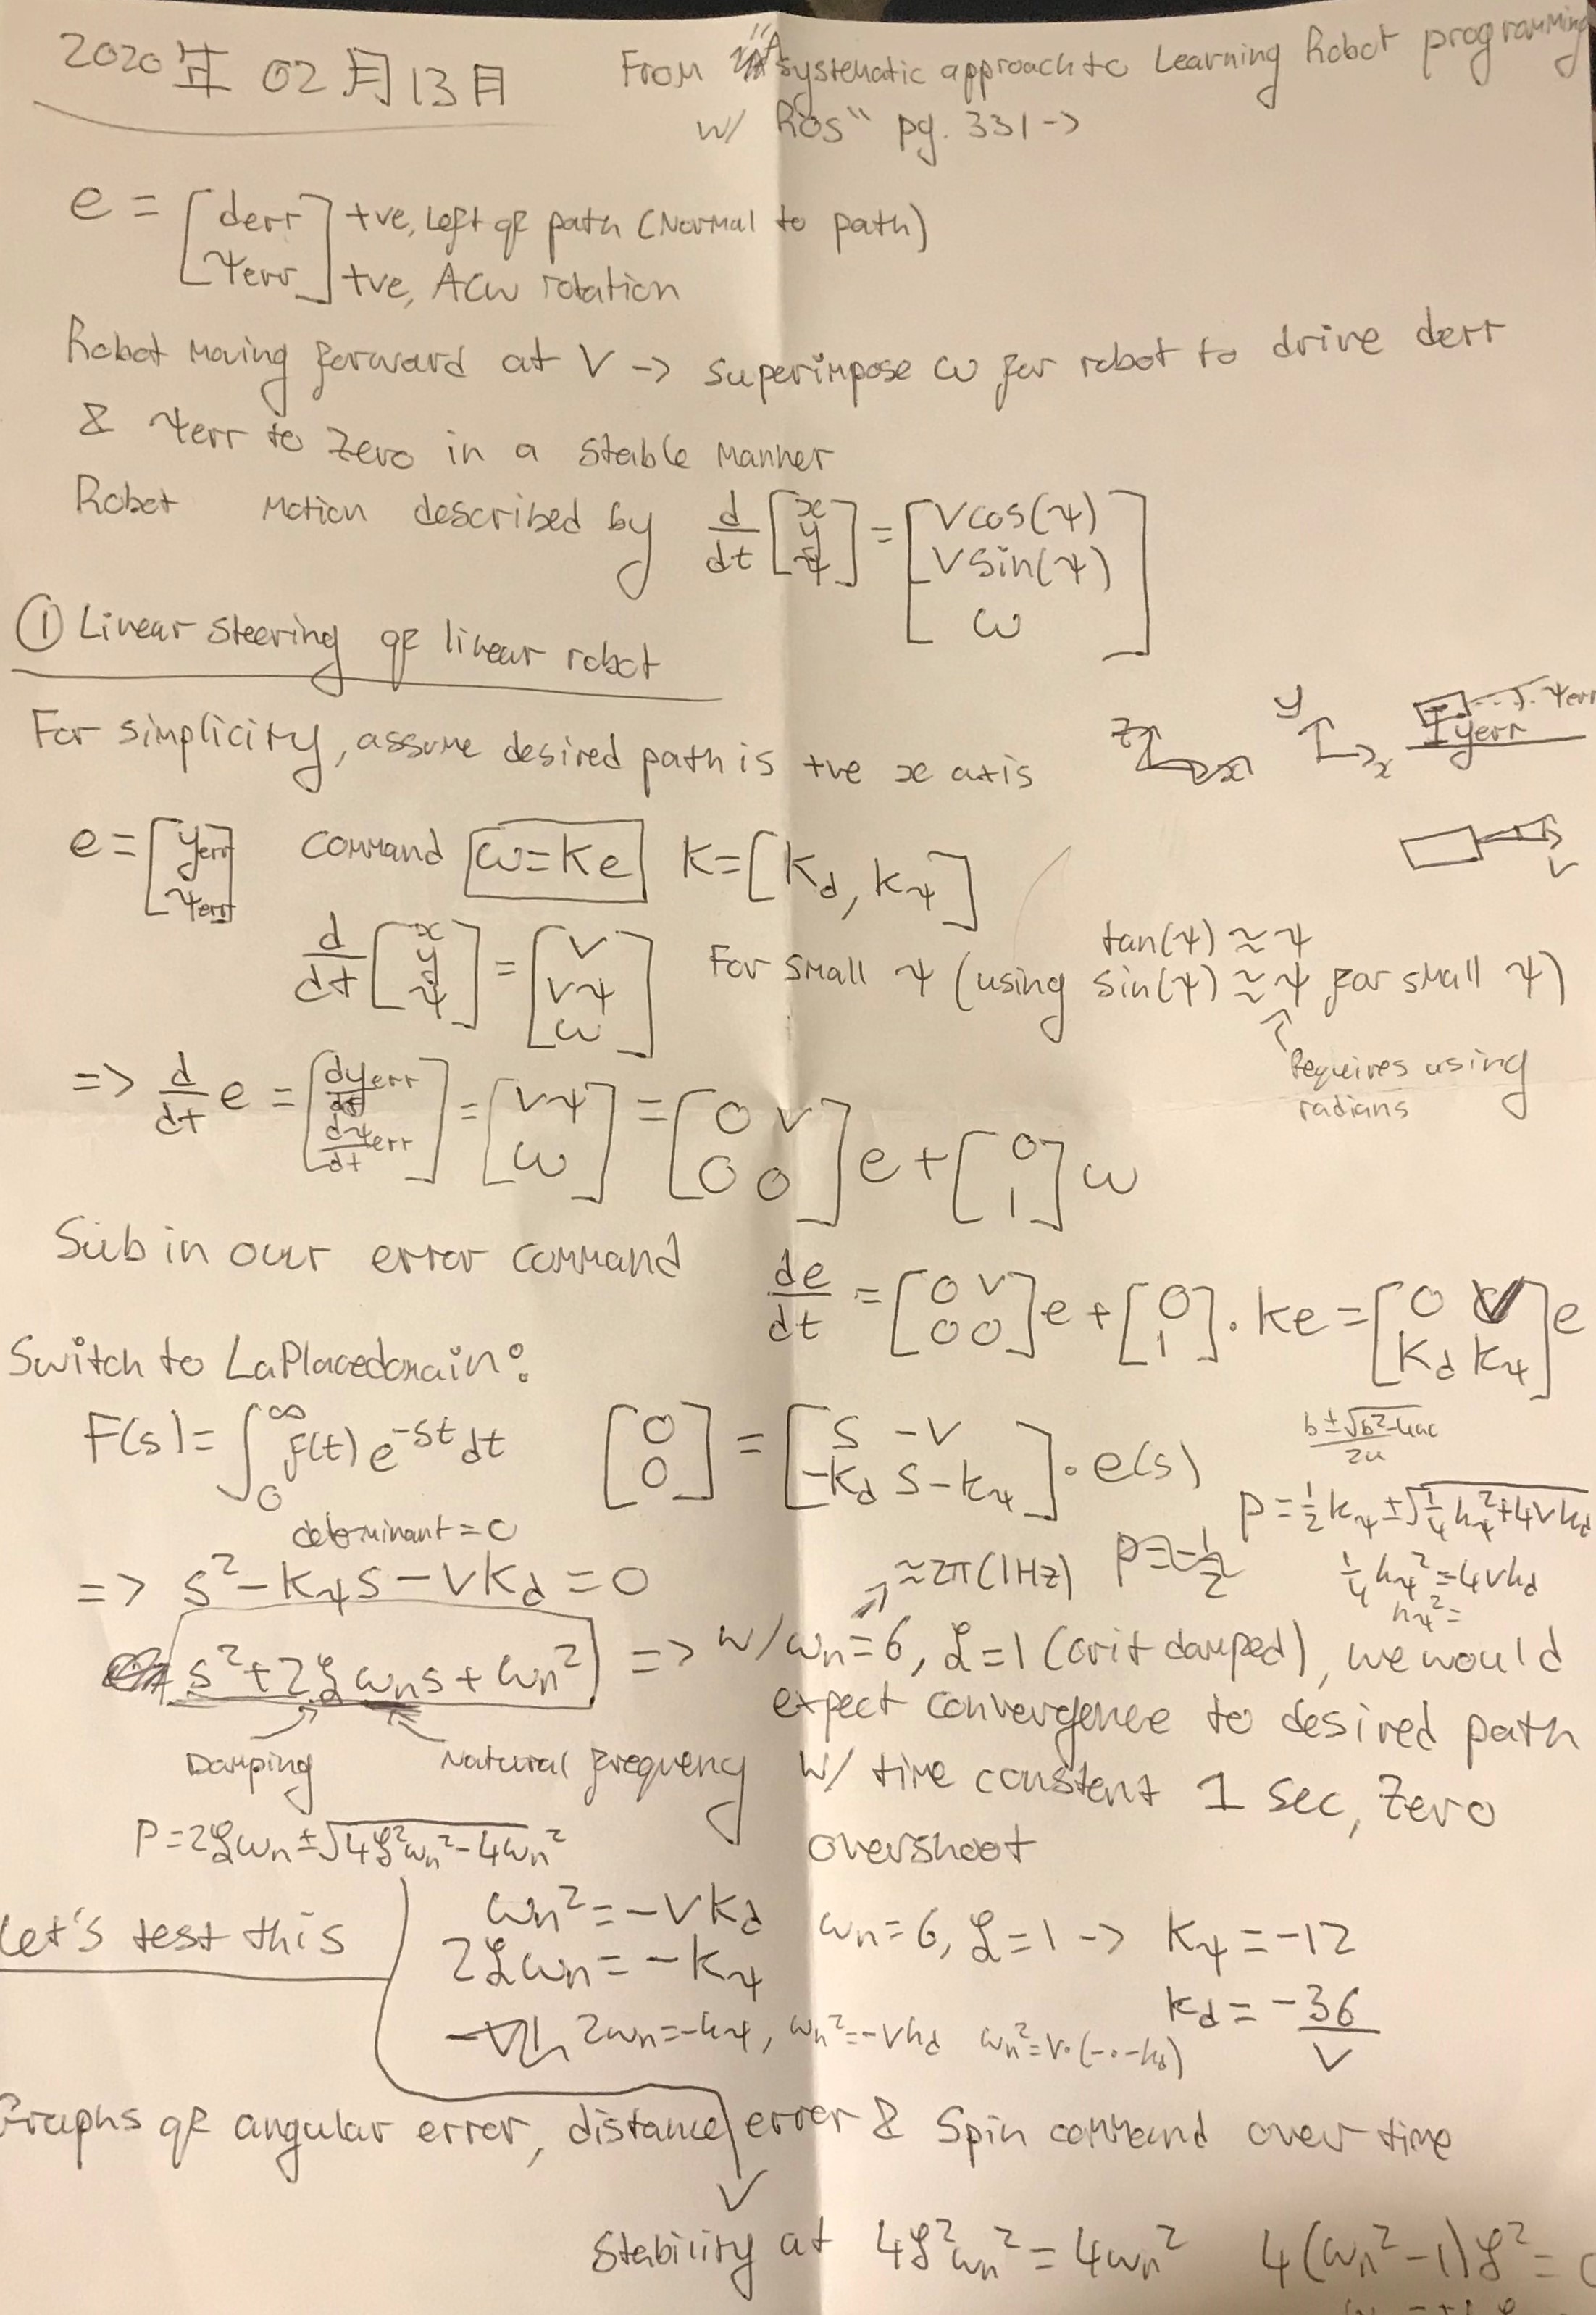 2020年 02月13日
From "A systematic approach to Learning Robot programming
w/ Ros" pg. 331 ->
e = [derr ψerr] +ve, Left of path (Normal to path)
+ve, ACW rotation
Robot moving forward at V -> superimpose ω for robot to drive derr
& ψerr to zero in a stable manner
Robot motion described by d/dt [x y ψ] = [Vcos(ψ) Vsin(ψ) ω]
① Linear Steering of linear robot
For simplicity, assume desired path is +ve x axis
z x
y x
ψerr
yerr
V
e = [yerr ψerr] command ω=Ke K=[Kd, Kψ]
d/dt [x y ψ] = [V Vψ ω] For small ψ (using sin(ψ) ≈ ψ for small ψ)
tan(ψ) ≈ ψ
Requires using
radians
=> d/dt e = [dyerr/dt dψerr/dt] = [Vψ ω] = [0 V 0 0] e + [0 1] ω
Sub in our error command
de/dt = [0 V 0 0] e + [0 1] · Ke = [0 V Kd Kψ] e
Switch to LaPlacedomain:
F(s) = ∫₀^∞ f(t) e^-st dt [0 0] = [s -V -Kd s-Kψ] · e(s)
b±√b²-4ac / 2a
P = ½kψ ± √¼kψ²+4Vkd
determinant = 0
=> s² - Kψs - VKd = 0
≈2π (1Hz) P = -½
¼kψ² = 4Vkd
kψ² =
s² + 2ξωns + ωn² => w/ ωn = 6, ξ = 1 (crit damped), we would
expect convergence to desired path
w/ time constant 1 sec, zero
overshoot
Damping Natural frequency
P = 2ξωn ± √4ξ²ωn² - 4ωn²
Let's test this
ωn² = -VKd
2ξωn = -Kψ
ωn = 6, ξ = 1 -> Kψ = -12
Kd = -36/V
2ωn = -kψ, ωn² = -Vkd ωn² = V·(-·-kd)
Graphs of angular error, distance error & Spin command over time
Stability at 4ξ²ωn² = 4ωn² 4(ωn² - 1)ξ² =